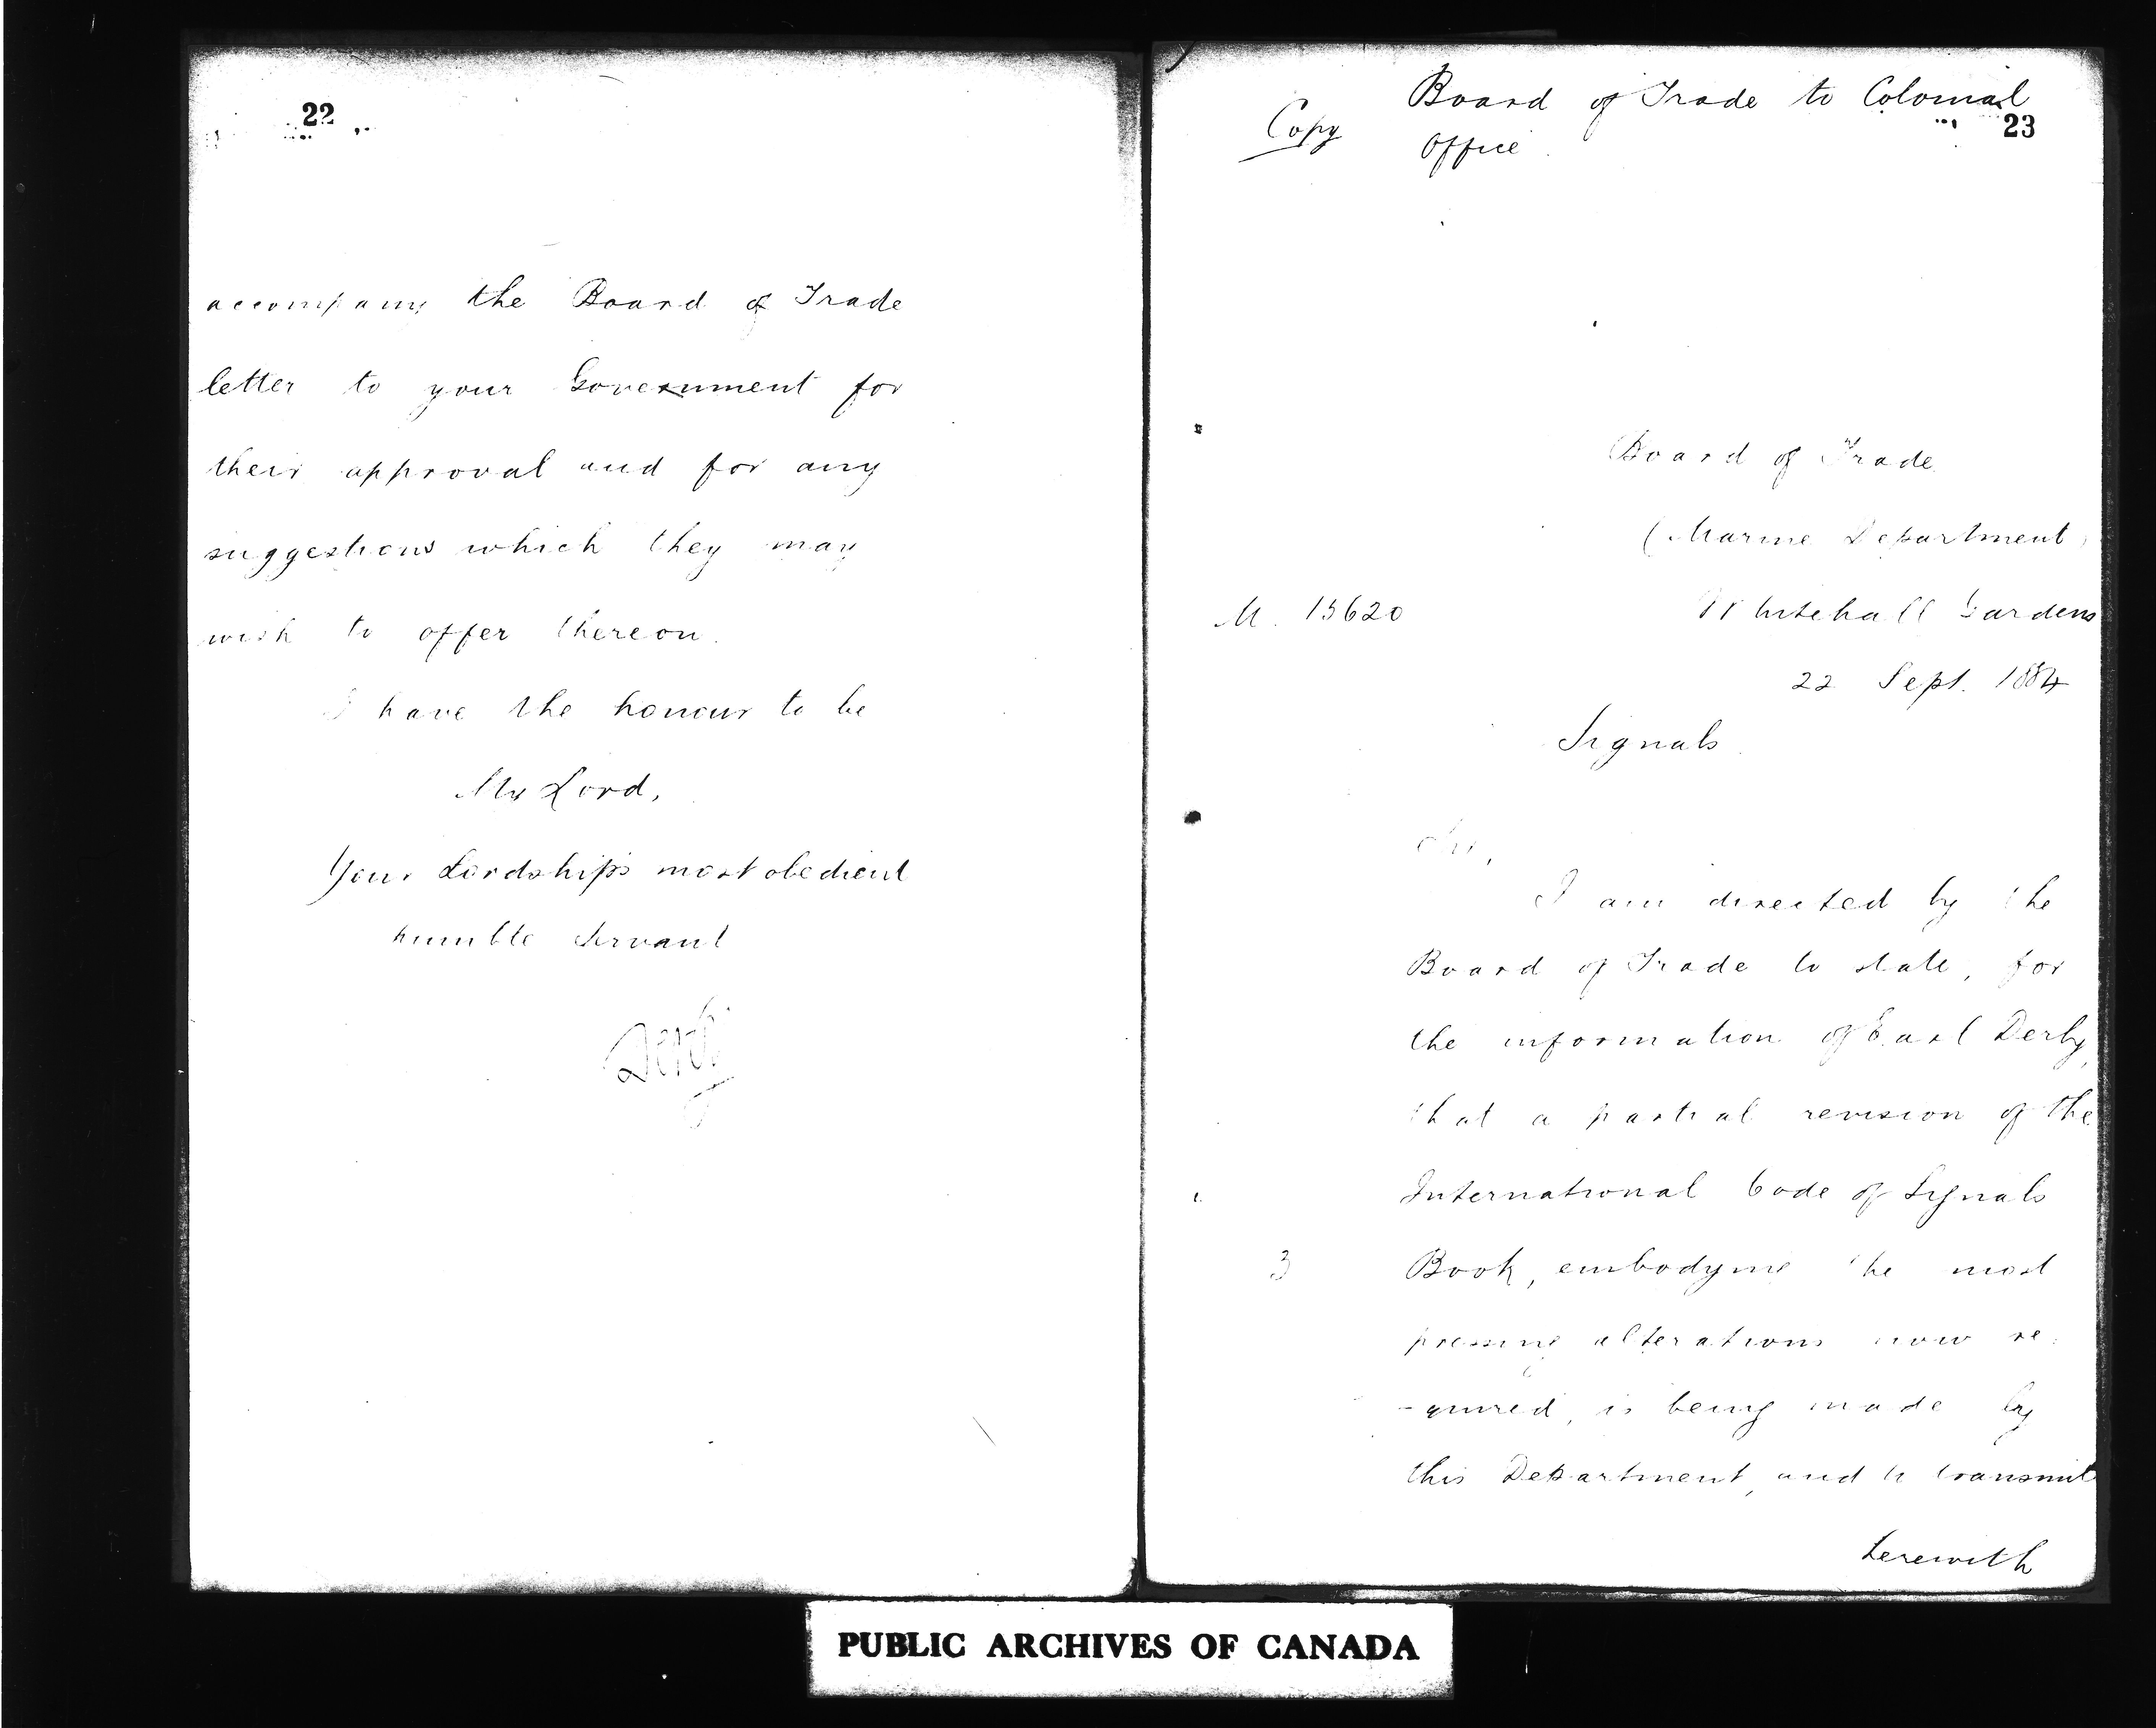 22
accompany the Board of Trade
letter to your Government for
their approval and for any
suggestions which they may
wish to offer thereon.
I have the honour to be
My Lord,
Your Lordship's most obedient
humble servant
Derby
23
Copy
Board of Trade to Colonial
Office
Board of Trade
(Marine Department)
M. 15620
Whitehall Gardens
22 Sept. 1884
Signals
Sir,
I am directed by the
Board of Trade to state, for
the information of Earl Derby,
that a partial revision of the
International Code of Signals
3
Book, embodying the most
pressing alterations now re
-quired, is being made by
this Department, and to transmit
herewith
PUBLIC ARCHIVES OF CANADA